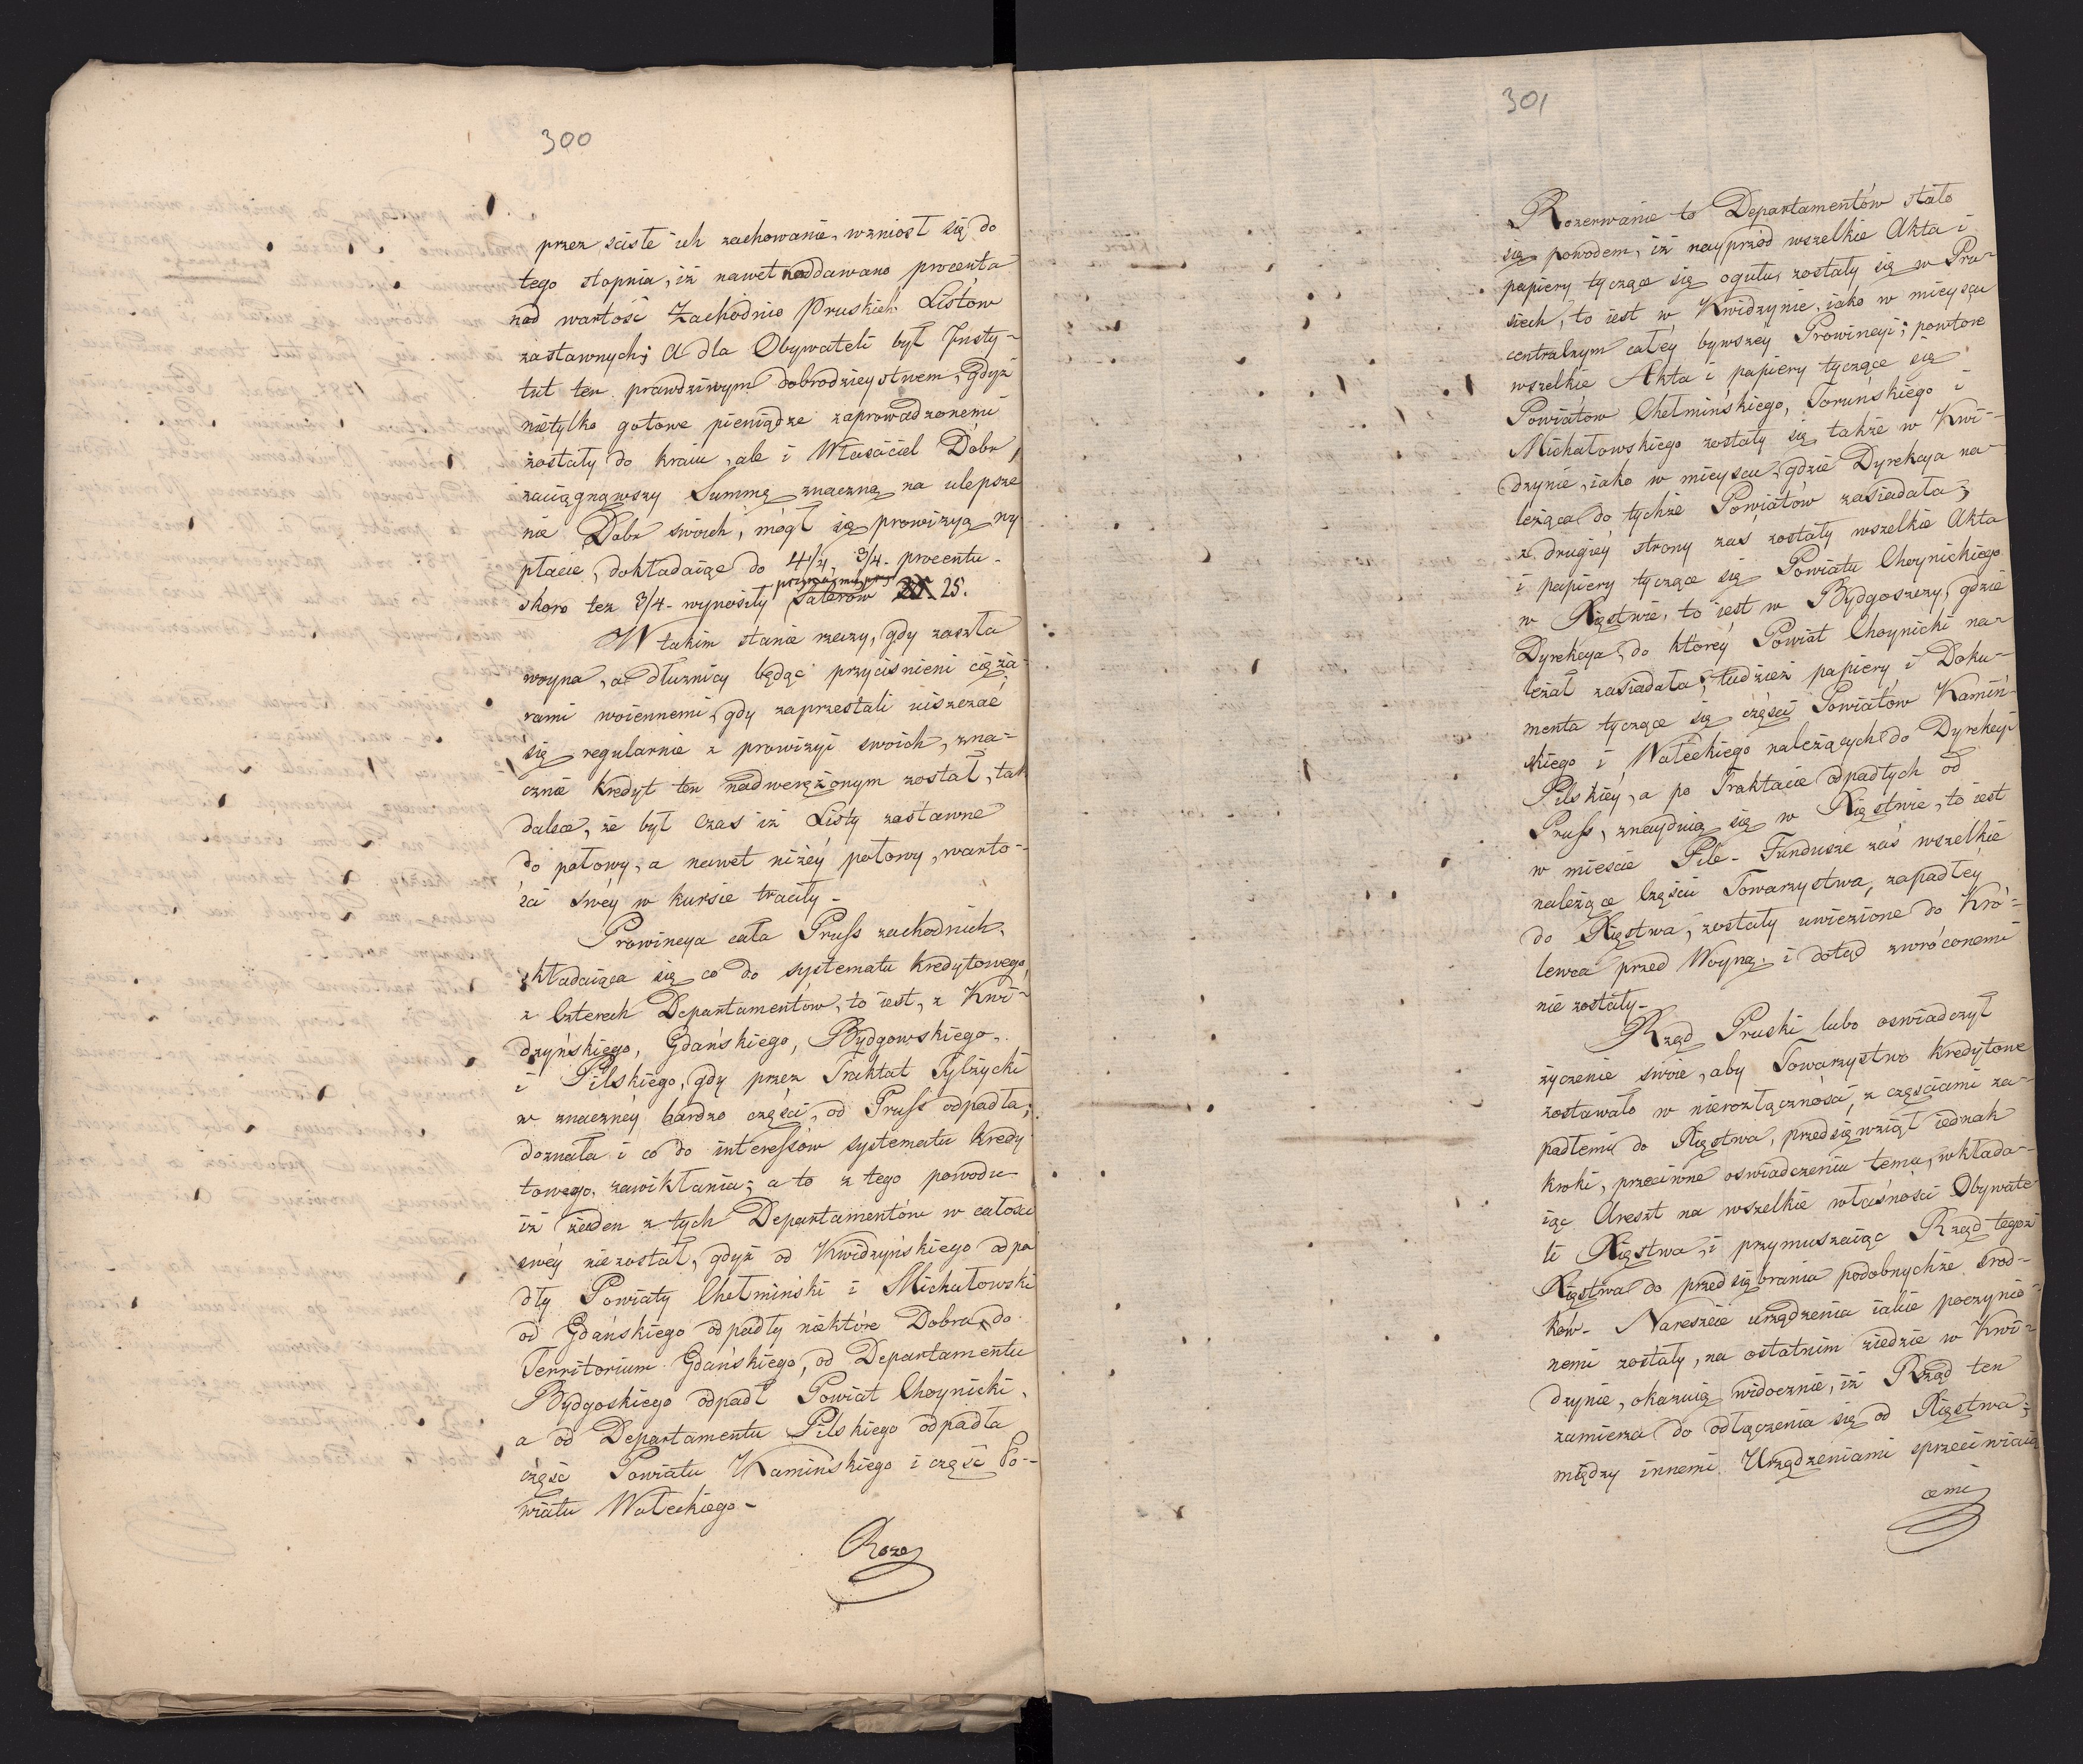 300
przez scisłe ich zachowanie, wzniosł się do
tego stopnia, iż nawet naddawano procenta
nad wartość Zachodnio Pruskich Listów
zastawnych; a dla Obywateli był Insty-
tut ten prawdziwym dobrodzieystwem, gdyż
nietylko gotowe pieniądze zaprowadzonemi
zostały do kraiu, ale i Właściciel Dóbr,
zaciągnąwszy Summę znaczną na ulepsze
nie Dobr swoich, mógł się prowizyą wy
płacić, dokładaiąc do 4 1/4. 3/4. procentu.
skoro tez 3/4 - wynosiły Talerów 25.
W takim stanie rzeczy, gdy zaszła
woyna, a dłuznicy będąc przyciśnieni cięża-
rami woiennemi, gdy zaprzestali uiszczać
się regularnie z prowizyi swoich, zna=
cznie kredyt ten nadwerężonym został, tak
dalece, że był czas iż Listy zastawne
do połowy, a nawet niżéy połowy, warto-
ści swéy w kursie traciły -
Prowincya cała Pruss zachodnich,
składaiąca się co do systematu kredytowego,
z czterech Departamentów, to iest, z Kwi-
dzyńskiego, Gdańskiego, Bydgowskiego,
i Pilskiego, gdy przez Traktat Tylżycki
w znacznéy bardzo części, od Pruss odpadła;
doznała i co do interessów systematu kredy
towego, zawikłania; a to z tego powodu
iż żaden z tych Departamentów w całości
swéy niezostał, gdyż od Kwidzyńskiego odpa
dły Powiaty Chełmiński i Michałowski
od Gdańskiego odpadły niektóre Dobra do
Territorium Gdańskiego, od Departamentu
Bydgoskiego odpadł Powiat Choynicki,
a od Departamentu Pilskiego odpadła
część Powiatu Kamińskiego i część Po-
wiatu Wałeckiego -
Roze
301
Rozerwanie to Departamentów stało
się powodem, iż nayprzód wszelkie Akta i
papiery tyczące się ogułu, zostały się w Pru-
siech, to iest w Kwidzynie, iako w mieyscu
centralnym całéy bywszey Prowincyi; powtóre
wszelkie Akta i papiery tyczące się
Powiatow Chełmińskiego, Toruńskiego i
Michałowskiego zostały się także w Kwi-
dzynie, iako w mieyscu, gdzie Dyrekcya na
leżąca do tychże Powiatów zasiadała;
z drugiéy strony zaś zostały wszelkie Akta
i papiery tyczące się Powiatu Choynickiego
w Xięstwie, to iest w Bydgoszczy, gdzie
Dyrekcya, do któréy Powiat Choynicki na-
leżał zasiadała; tudzież papiery i Doku-
menta tyczące się części Powiatów Kamiń-
skiego i Wałeckiego należących do Dyrekcyi
Pilskiéy, a po Traktacie odpadłych od
Pruss, znayduią się w Xięstwie, to iest
w mieście Pile - Fundusze zaś wszelkie
należące Części Towarzystwa, zapadłéy
do Xięstwa, zostały uwiezione do Kró=
lewca przed Woyną, i dotąd zwróconemi
nie zostały -
Rząd Pruski lubo oswiadczył
życzenie swoie, aby Towarzystwo kredytowe
zostawało w nierozłączności, z częściami za-
padłemi do Xięstwa, przedsięwziął iednak
kroki, przeciwne oswiadczeniu temu, wkłada-
iąc Areszt na wszelkie własności Obywate
li Xięstwa, i przymuszaiąc Rząd tegoż
Xięstwa do przedsiębrania podobnychże środ-
ków - Nareszcie urządzenia iakie poczynio-
nemi zostały, na ostatnim zieździe w Kwi-
dzynie, okazuią widocznie, iż Rząd ten
zamierza do odłączenia się od Xięstwa;
między innemi Urządzeniami sprzeciwiaią
cemi